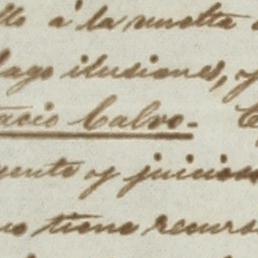 llo á la vuelta
hago ilusiones, y
tacio Calvo.-
gente y juicioso
no tiene recurso